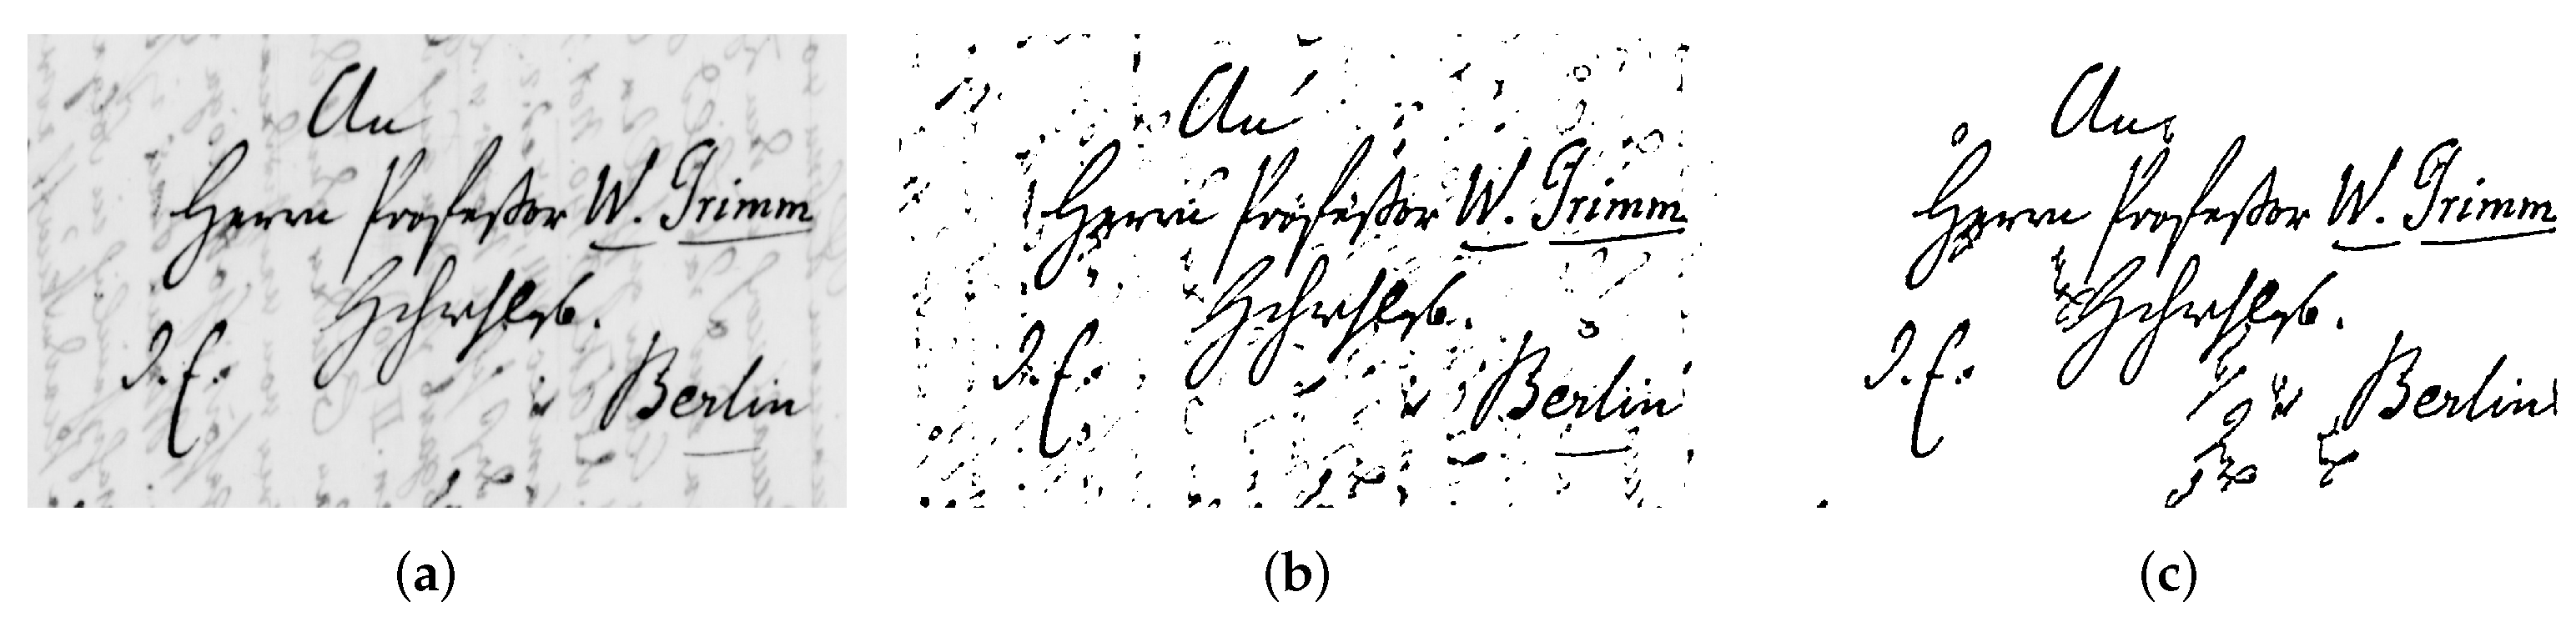 An
Herrn Profeßor W. Grimm
Berlin
(a)
An
Herrn Profeßor W. Grimm
Berlin
(b)
An
Herrn Profeßor W. Grimm
Berlin
(c)